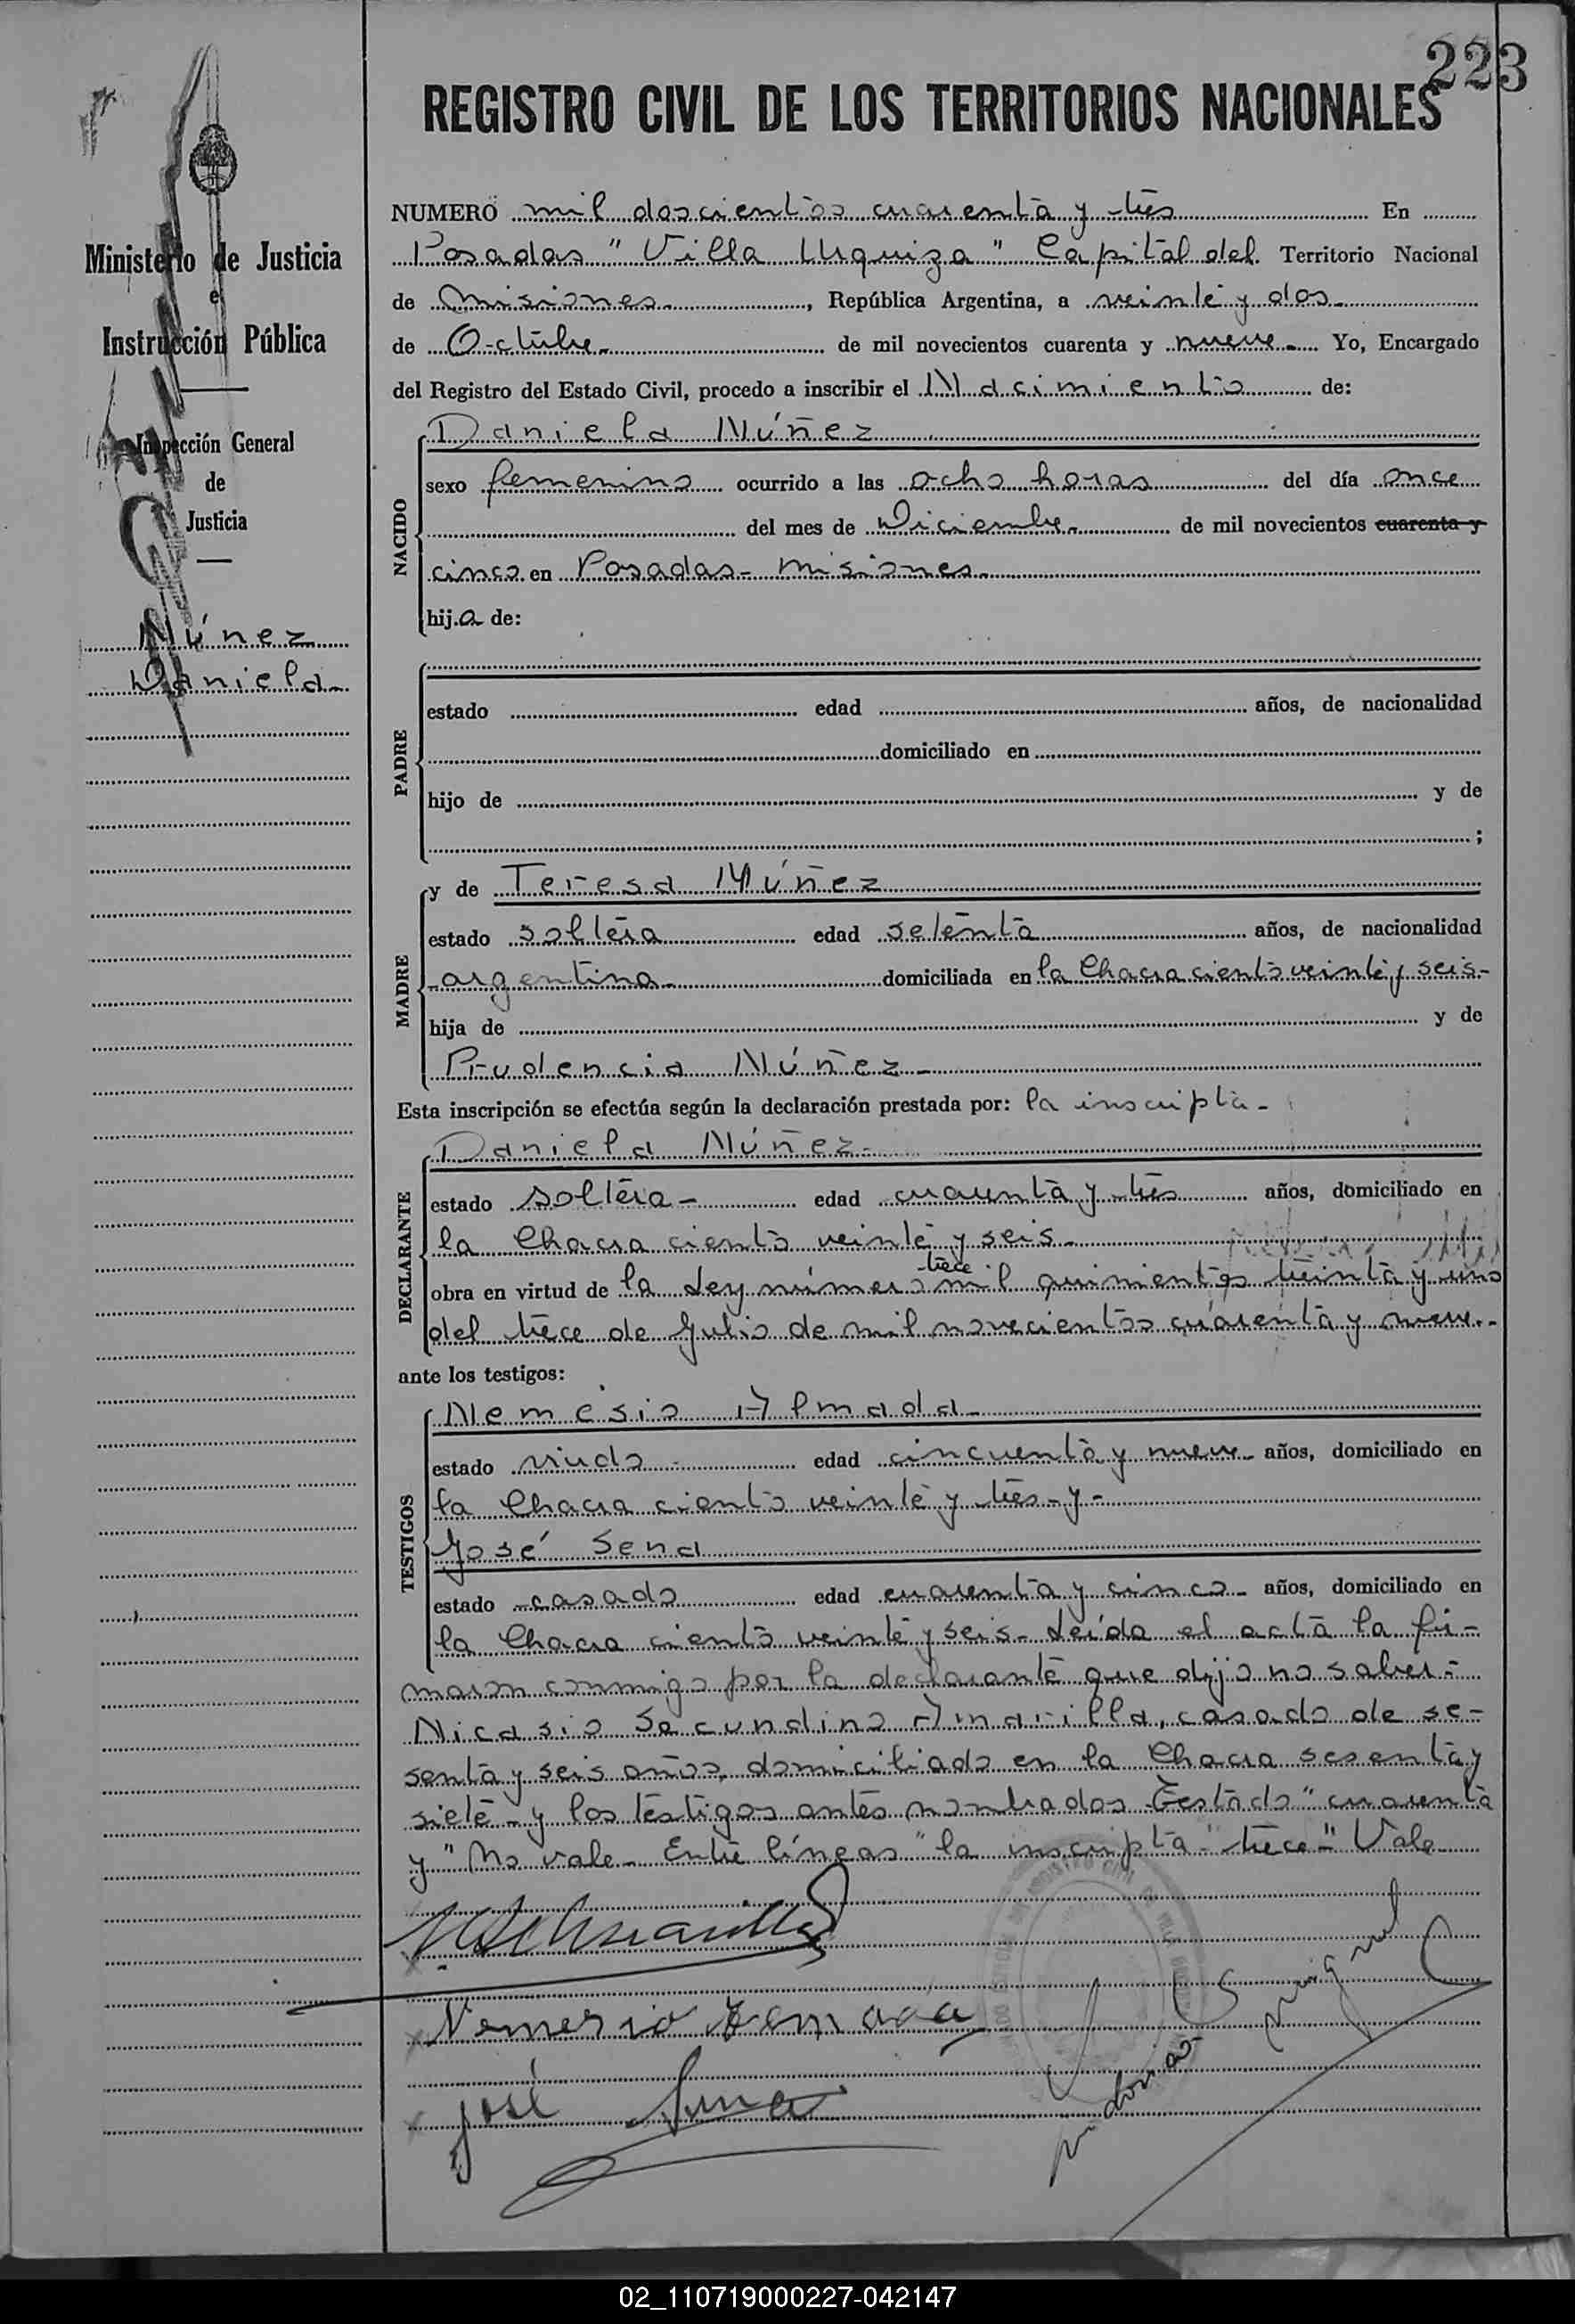 223
REGISTRO CIVIL DE LOS TERRITORIOS NACIONALES
Ministerio de Justicia
e
Instrucción Pública
Inspección General
de
Justicia
Núnez
Daniela-
NUMERO mil doscientos cuarenta y tres En
Posadas "Villa Urquiza" Capital del Territorio Nacional
de Misiones, República Argentina, a veinte y dos
de Octubre. de mil novecientos cuarenta y nueve. Yo, Encargado
del Registro del Estado Civil, procedo a inscribir el Nacimiento de:
NACIDO
Daniela Núñez
sexo femenino ocurrido a las ocho horas del día once
del mes de Diciembre. de mil novecientos cuarenta y
cinco en Posadas- Misiones.
hija de:
PADRE
estado edad años, de nacionalidad
domiciliado en
hijo de y de
;
MADRE
y de Teresa Núñez
estado soltera edad setenta años, de nacionalidad
argentina domiciliada en la Chacra ciento veinte y seis-
hija de y de
Prudencia Núñez-
Esta inscripción se efectúa según la declaración prestada por: la inscripta-
DECLARANTE
Daniela Núñez-
estado soltera- edad cuarenta y tres años, domiciliado en
la Chacra ciento veinte y seis-
trece
obra en virtud de la Ley número mil quinientos treinta y uno
del trece de Julio de mil novecientos cuarenta y nueve.-
ante los testigos:
TESTIGOS
Nemesio Almada-
estado viudo edad cincuenta y nueve- años, domiciliado en
la Chacra ciento veinte y tres-y-
José Sena
estado casado edad cuarenta y cinco- años, domiciliado en
la Chacra ciento veinte y seis- Leída el acta la fir-
maron conmigo por la declarante que dijo no saber-
Nicasio Secundino Amarilla, casado de se-
senta y seis años, domiciliado en la Chacra sesenta y
siete-y los testigos antes nombrados-Testado "cuarenta
y" No vale- Entre líneas "la inscripta-" trece-" Vale
Nemesio Almada
José Sena
02_110719000227-042147